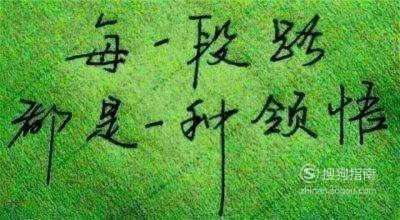 每一段路
都是一种领悟
搜狗指南
zhinan.sogou.com